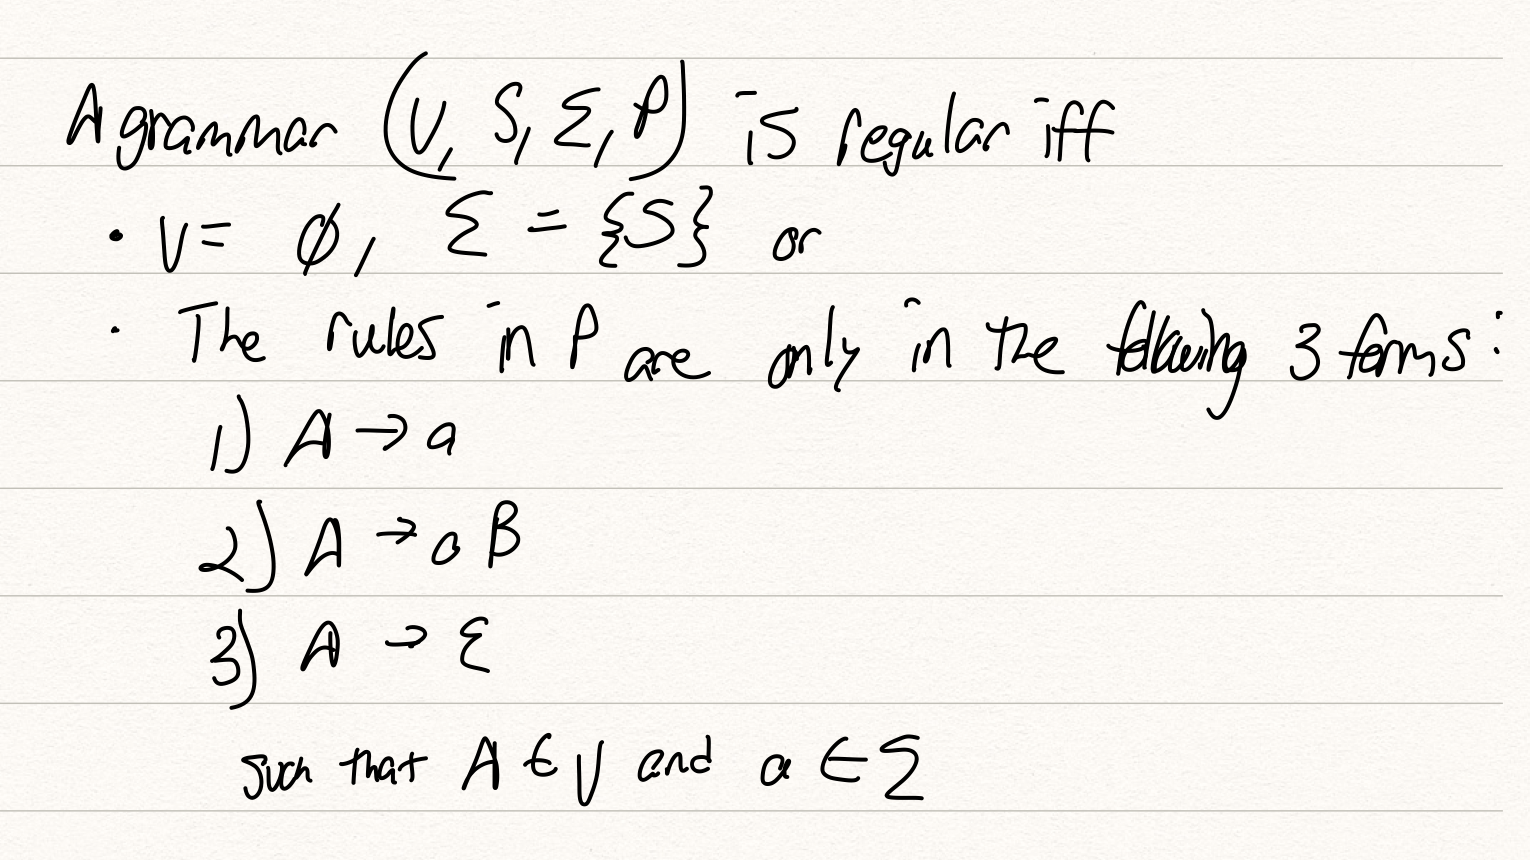 A grammar (V, S, Σ, P) is regular iff
• V = ∅, Σ = {S} or
• The rules in P are only in the following 3 forms:
1) A → a
2) A → a B
3) A → ε
such that A ∈ V and a ∈ Σ